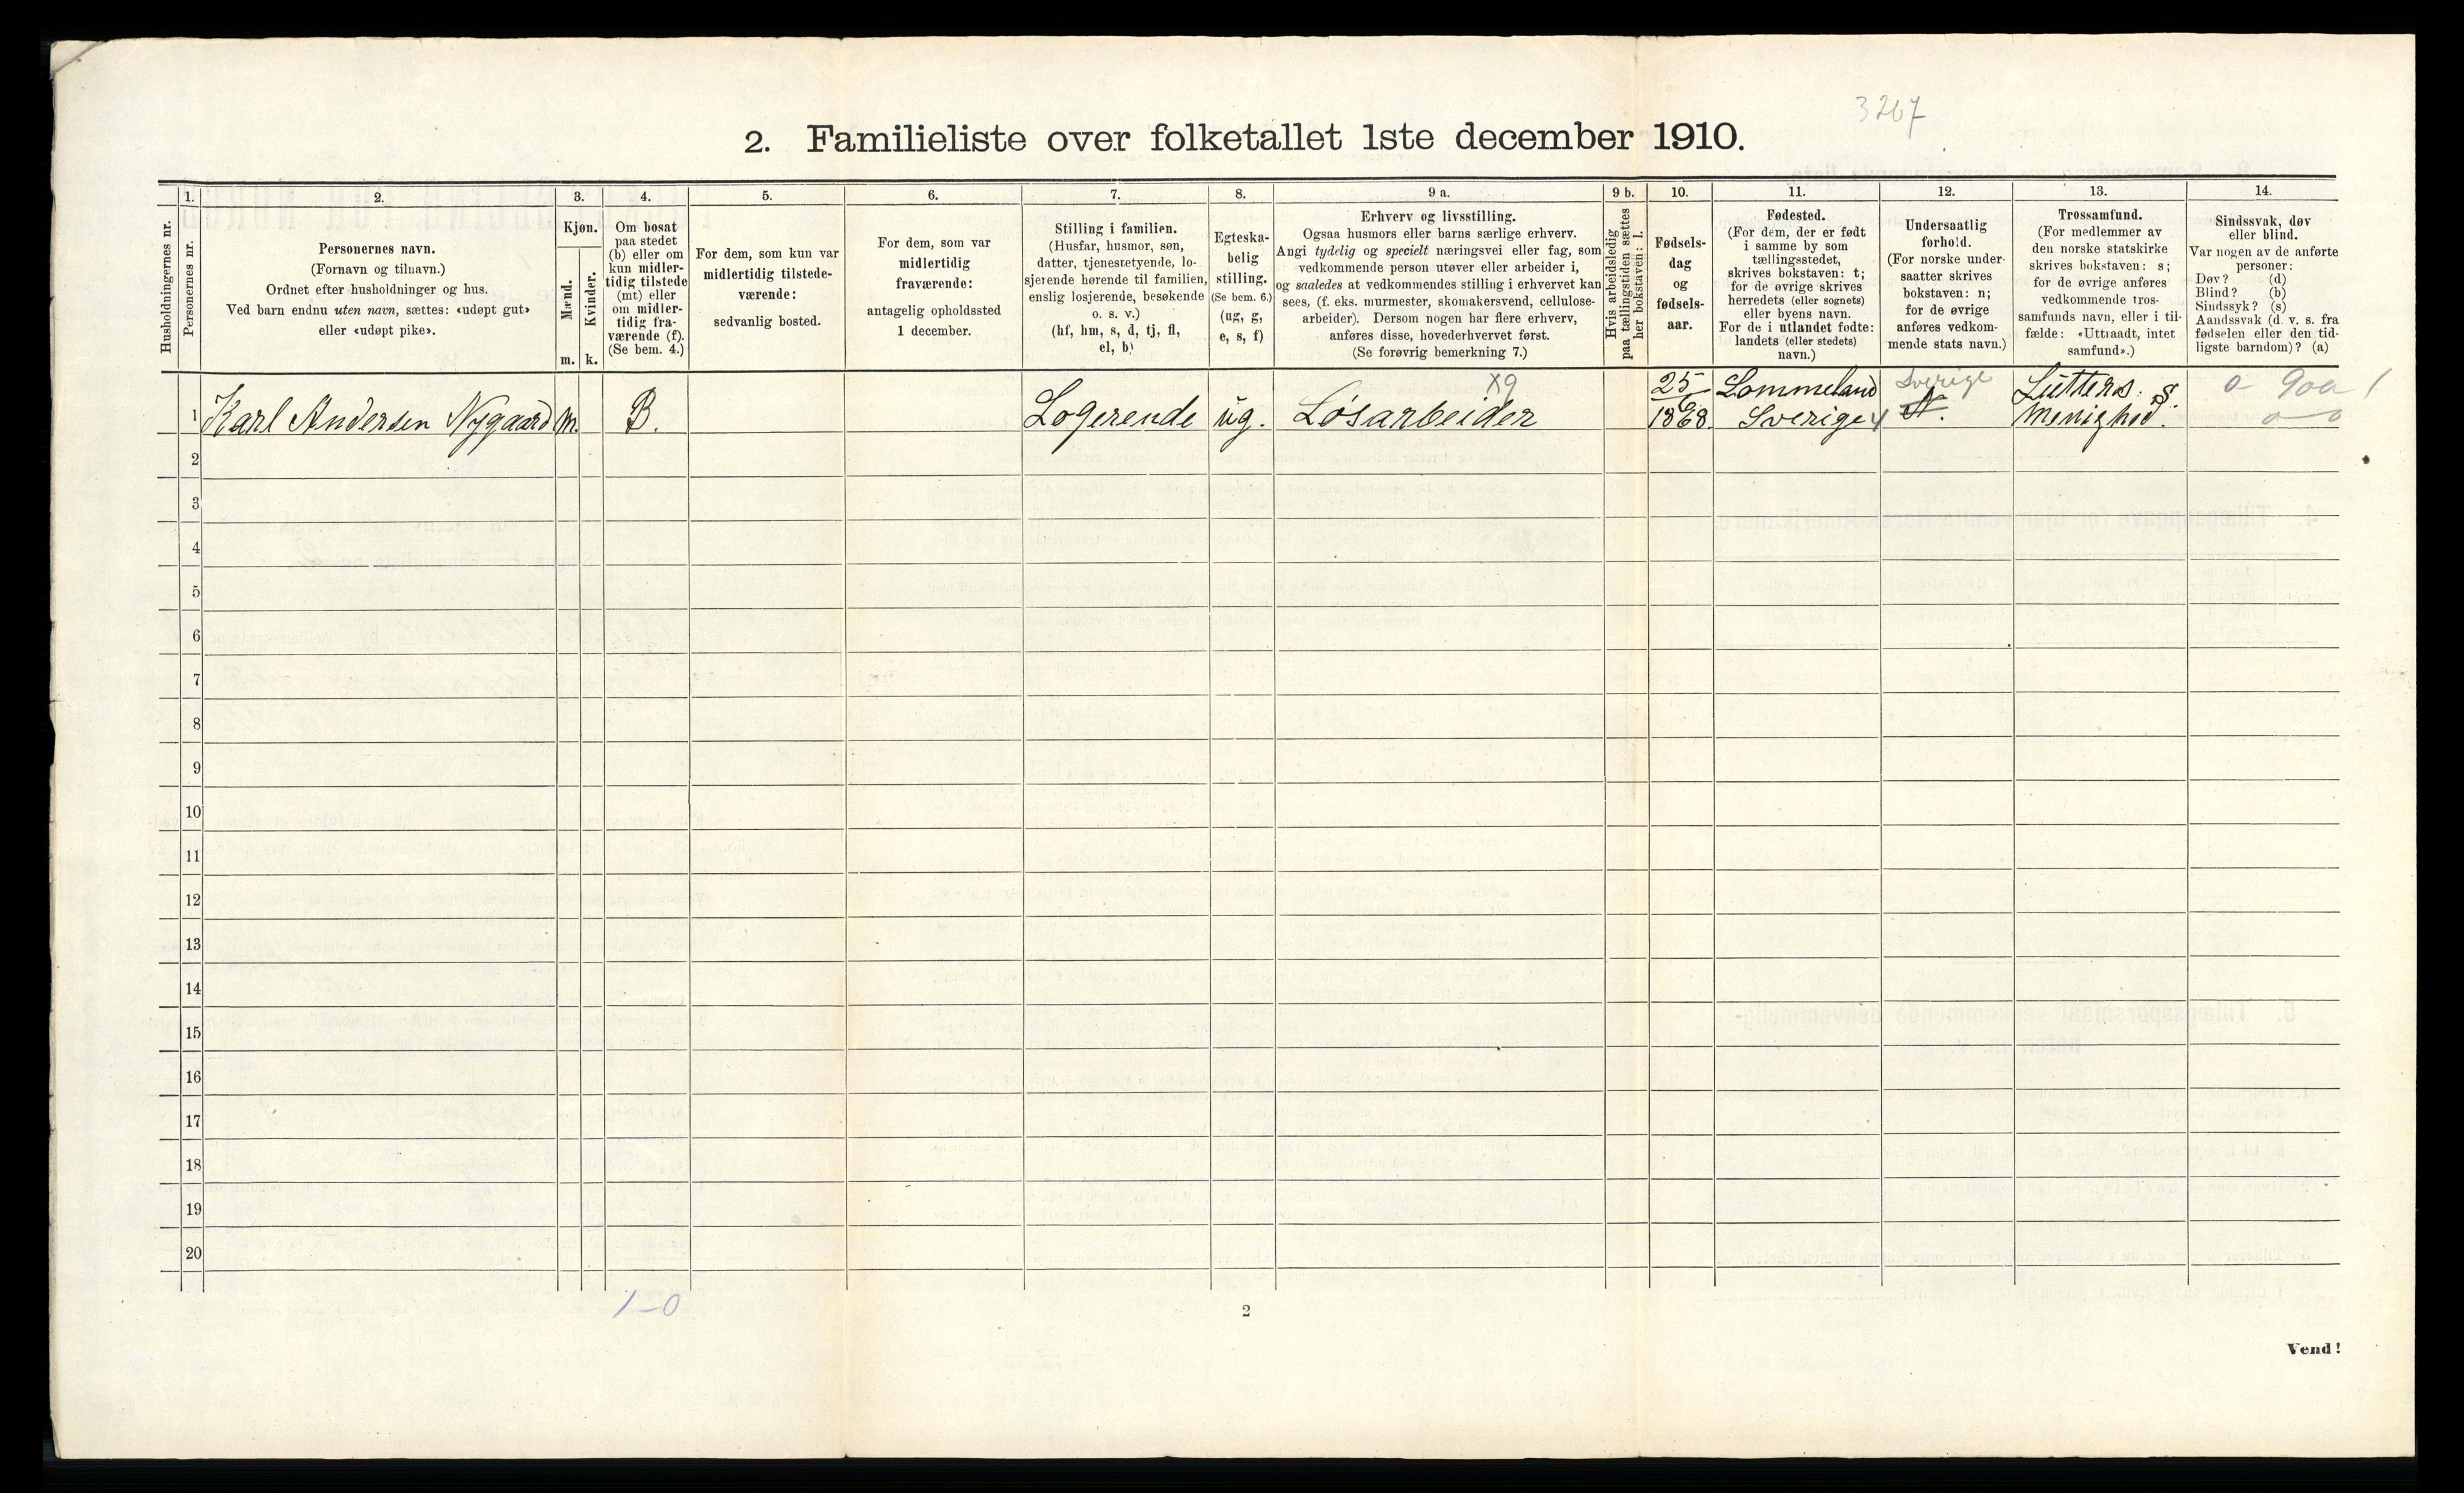 3267
2. Familieliste over folketallet 1ste december 1910.
Husholdningernes nr.
1.
Personernes nr.
2.
Personernes navn.
(Fornavn og tilnavn.)
Ordnet efter husholdninger og hus.
Ved barn endnu uten navn, sættes: «udøpt gut»
eller «udøpt pike».
3.
Kjøn.
Mænd.
Kvinder.
m.
k.
4.
Om bosat
paa stedet
(b) eller om
kun midler-
tidig tilstede
(mt) eller
om midler-
tidig fra-
værende (f).
(Se bem. 4.)
5.
For dem, som kun var
midlertidig tilstede-
værende:
sedvanlig bosted.
6.
For dem, som var
midlertidig
fraværende:
antagelig opholdssted
1 december.
7.
Stilling i familien.
(Husfar, husmor, søn,
datter, tjenestetyende, lo-
sjerende hørende til familien,
enslig losjerende, besøkende
o. s. v.)
(hf, hm, s, d, tj, fl,
el, b)
8.
Egteska-
belig
stilling.
(Se bem. 6.)
(ug, g,
e, s, f)
9 a.
Erhverv og livsstilling.
Ogsaa husmors eller barns særlige erhverv.
Angi tydelig og specielt næringsvei eller fag, som
vedkommende person utøver eller arbeider i,
og saaledes at vedkommendes stilling i erhvervet kan
sees, (f. eks. murmester, skomakersvend, cellulose-
arbeider). Dersom nogen har flere erhverv,
anføres disse, hovederhvervet først.
(Se forøvrig bemerkning 7.)
9 b.
Hvis arbeidsledig
paa tællingstiden sættes
her bokstaven: l.
10.
Fødsels-
dag
og
fødsels-
aar.
11.
Fødested.
(For dem, der er født
i samme by som
tællingsstedet,
skrives bokstaven: t;
for de øvrige skrives
herredets (eller sognets)
eller byens navn.
For de i utlandet fødte:
landets (eller stedets)
navn.)
12.
Undersaatlig
forhold.
(For norske under-
saatter skrives
bokstaven: n;
for de øvrige
anføres vedkom-
mende stats navn.)
13.
Trossamfund.
(For medlemmer av
den norske statskirke
skrives bokstaven: s;
for de øvrige anføres
vedkommende tros-
samfunds navn, eller i til-
fælde: «Uttraadt, intet
samfund».)
14.
Sindssvak, døv
eller blind.
Var nogen av de anførte
personer:
Døv? (d)
Blind? (b)
Sindssyk? (s)
Aandssvak (d. v. s. fra
fødselen eller den tid-
ligste barndom)? (a)
x9 25 Lommeland Sverige Lutters. s.
1 Karl Andersen Nygaard m. B. Logerende ug. Løsarbeider 6 1868. Sverige N. Menighed.
2
3
4
5
6
7
8
9
10
11
12
13
14
15
16
17
18
19
20
1-0
2
Vend!